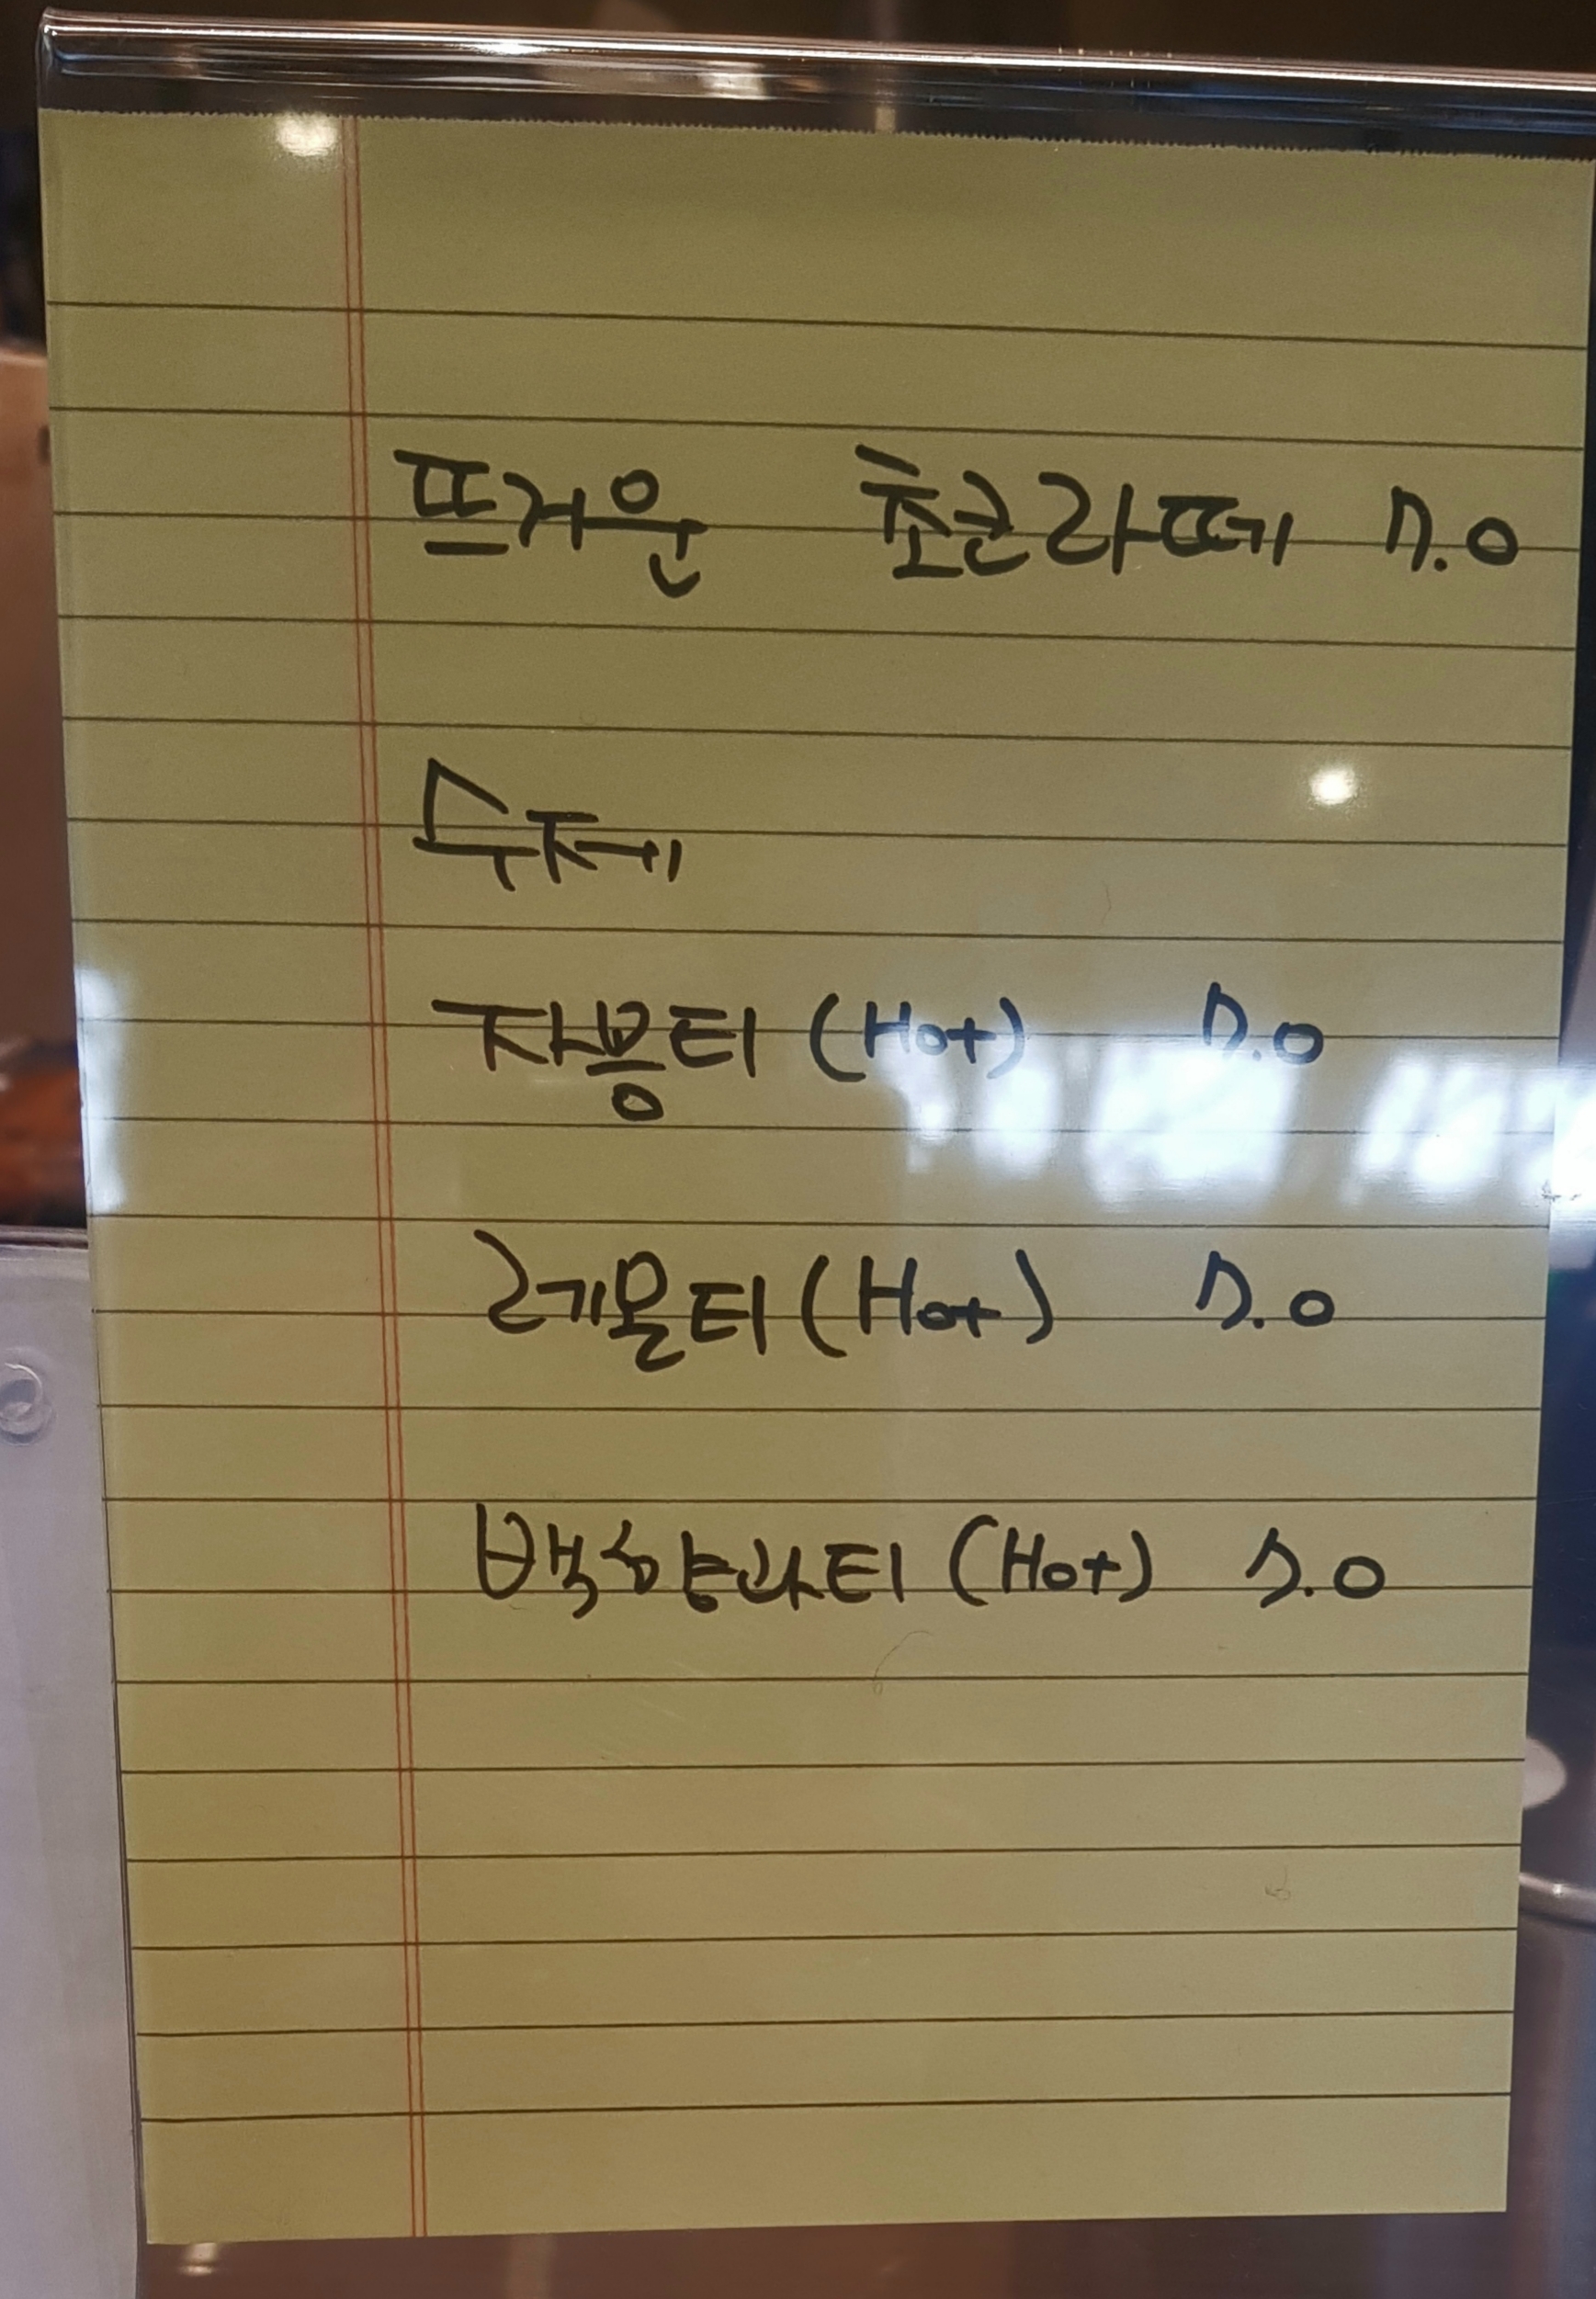 뜨거운 초코라떼 7.0
수제
자몽티 (Hot) 7.0
레몬티 (Hot) 7.0
백향과티 (Hot) 7.0